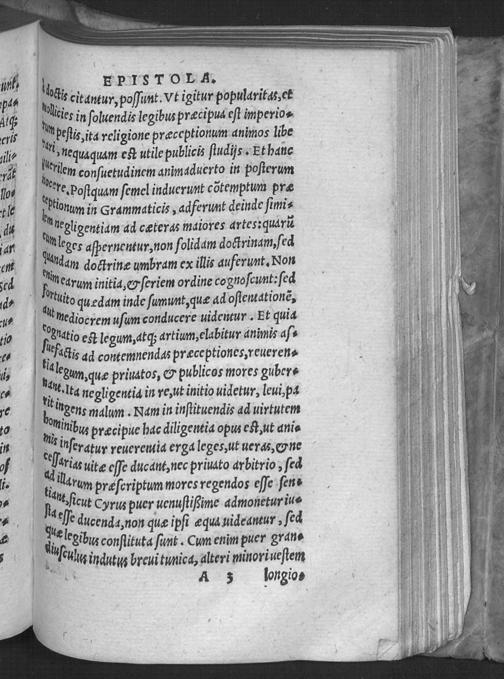 EPISTOLA.
à doctis citantur, possunt. Vt igitur popularitas, et
mollicies in soluendis legibus præcipua est imperio-
rum pestis, ita religione præceptionum animos libe
rari, nequaquam est utile publicis studijs. Et hanc
puerilem consuetudinem animaduerto in posterum
nocere. Postquam semel induerunt cõtemptum præ
ceptionum in Grammaticis, adferunt deinde simi-
lem negligentiam ad cæteras maiores artes: quarũ
cum leges aspernentur, non solidam doctrinam, sed
quandam doctrinæ umbram ex illis auferunt. Non
enim earum initia, & seriem ordine cognoscunt: sed
fortuito quædam inde sumunt, quæ ad ostentationẽ,
aut mediocrem usum conducere uidentur. Et quia
cognatio est legum, atq; artium, elabitur animis as-
suefactis ad contemnendas præceptiones, reueren-
tia legum, quæ priuatos, & publicos mores guber-
nant. Ita negligentia in re, ut initio uidetur, leui, pa
rit ingens malum. Nam in instituendis ad uirtutem
hominibus præcipue hac diligentia opus est, ut ani-
mis inseratur reuerentia erga leges, ut ueras, & ne
cessarias uitæ esse ducant, nec priuato arbitrio, sed
ad illarum præscriptum mores regendos esse sen-
tiant, sicut Cyrus puer uenustißime admonetur iu-
sta esse ducenda, non quæ ipsi æqua uideantur, sed
quæ legibus constituta sunt. Cum enim puer gran-
diusculus indutus breui tunica, alteri minori uestem
A 3 longio-